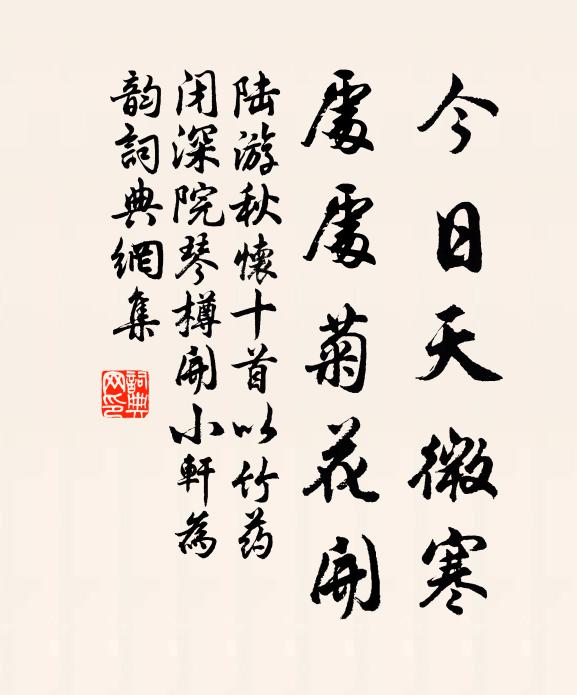 今日天微寒
處處菊花開
陆游秋懷十首以竹药
闭深院琴樽開小軒為
韵詞典網集
詞典网印